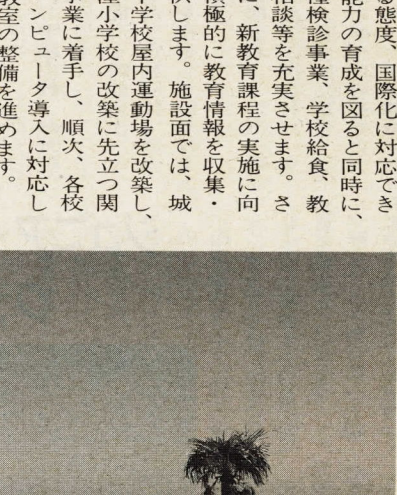 る態度、国際化に対応でき
能力の育成を図ると同時に、
種検診事業、学校給食、教
相談等を充実させます。さ
に、新教育課程の実施に向
積極的に教育情報を収集・
供します。施設面では、城
中学校屋内運動場を改築し、
小学校の改築に先立つ関
業に着手し、順次、各校
ンピュータ導入に対応し
教室の整備を進めます。